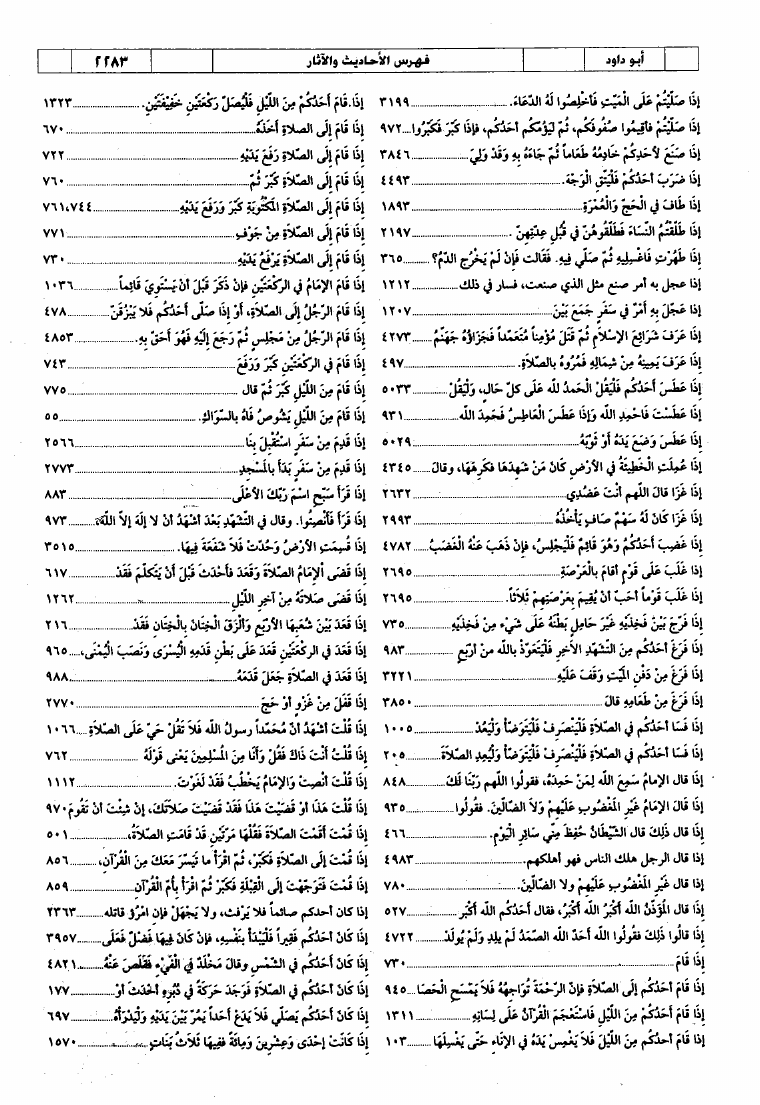 أبو داود
فهرس الأحاديث والآثار
٢٢٨٣
إِذَا صَلَّيْتُمْ عَلَى الْمَيِّتِ فَأَخْلِصُوا لَهُ الدُّعَاءَ. ٣١٩٩
إِذَا صَلَّيْتُمْ فأقِيمُوا صُفُوفَكُم، ثُمّ لْيَؤُمّكُم أحَدُكُم، فإذَا كَبّرَ فَكَبّرُوا ٩٧٢
إِذَا صَنَعَ لأحَدِكُمْ خَادِمُهُ طَعَاماً ثُمّ جَاءَهُ بِهِ وَقَدْ وَلِيَ ٣٨٤٦
إِذَا ضَرَبَ أحَدُكُم فَلْيَتّقِ الْوَجْهَ. ٤٤٩٣
إِذَا طَافَ في الْحَجّ وَالْعُمْرَةِ ١٨٩٣
إِذَا طَلّقْتُمُ النّسَاءَ فَطَلّقُوهُنّ في قُبُلِ عِدّتِهِنّ. ٢١٩٧
إِذَا طَهُرْتِ فَاغْسِلِيهِ ثُمّ صَلّي فِيهِ. فَقَالت فَإِنْ لَمْ يَخْرُجِ الدّمُ؟ ٣٦٥
إذا عجل به أمر صنع مثل الذي صنعت، فسار في ذلك ١٢١٢
إِذَا عَجّلَ بِهِ أمْرٌ في سَفَرٍ جَمَعَ بَيْنَ ١٢٠٧
إِذَا عَرَفَ شَرَائِعَ الإسْلاَمِ ثُمّ قَتَلَ مُؤْمِناً مُتَعَمّداً فَجَزَاؤُهُ جَهَنّمُ ٤٢٧٣
إِذَا عَرَفَ يَمِينَهُ مِنْ شِمَالِهِ فَمُرُوهُ بالصّلاَةِ. ٤٩٧
إِذَا عَطَسَ أحَدُكُم فَلْيَقُلْ الْحَمدُ لله عَلَى كلّ حَالٍ، وَلْيَقُلْ ٥٠٣٣
إِذَا عَطَسْتَ فَاحْمِدِ الله وَإذَا عَطَسَ الْعَاطِسُ فَحَمِدَ الله ٩٣١
إِذَا عَطَسَ وَضَعَ يَدَهُ أوْ ثَوْبَهُ ٥٠٢٩
إِذَا عُمِلَتِ الْخَطِيئَةُ في الأرْضِ كَانَ مَنْ شَهِدَهَا فَكَرِهَهَا، وقالَ ٤٣٤٥
إِذَا غَزَا قالَ اللهم أنْتَ عَضُدِي ٢٦٣٢
إِذَا غَزَا كَانَ لَهُ سَهْمٌ صَافٍ يَأخُذُهُ ٢٩٩٣
إِذَا غَضِبَ أحَدُكُم وَهُوَ قَائِمٌ فَلْيَجْلِسْ، فإنْ ذَهَبَ عَنْهُ الْغَضَبُ ٤٧٨٢
إذا غَلَبَ عَلَى قَوْمٍ أقامَ بالْعَرْصَةِ ٢٦٩٥
إذا غَلَبَ قَوْماً أحَبّ أنْ يُقِيمَ بِعَرْصَتِهِمْ ثَلاَثاً. ٢٦٩٥
إِذَا فَرّجَ بَيْنَ فَخِذَيْهِ غَيْرَ حَامِلٍ بَطْنَهُ عَلَى شَيْءٍ مِنْ فَخِذَيْهِ ٧٣٥
إِذَا فَرَغَ أحَدُكُم مِنَ التّشَهّدِ الآخِرِ فَلْيَتَعَوّذْ بالله من أرْبَعٍ ٩٨٣
إِذَا فَرَغَ مِنْ دَفْنِ المَيّتِ وَقَفَ عَلَيْهِ ٣٢٢١
إِذَا فَرَغَ مِنْ طَعَامِهِ قالَ ٣٨٥٠
إِذَا فَسَا أحَدُكُم في الصلاةِ فَلْيَنْصَرِفْ فَلْيَتَوَضّأْ وَلْيُعِدْ ١٠٠٥
إِذَا فَسَا أحَدُكُم في الصّلاةِ فَلْيَنْصَرِفْ فَلْيَتَوَضّأْ وَلْيُعِدِ الصلاةَ ٢٠٥
إِذَا قال الإمامُ سَمِعَ الله لِمَنْ حَمِدَهُ، فقولُوا اللهم رَبّنَا لَكَ ٨٤٨
إِذَا قَالَ الإمَامُ غَيْرِ المَغْضُوبِ عَلَيْهِمْ وَلاَ الضّالّينَ. فقُولُوا ٩٣٥
إِذَا قال ذَلِكَ قال الشّيْطَانُ حُفِظَ مِنّي سَائِرَ الْيَوْمِ. ٤٦٦
إذا قال الرجل هلك الناس فهو أهلكهم. ٤٩٨٣
إذا قال غَيْرِ المَغْضُوبِ عَلَيْهِمْ ولا الضالّينَ. ٧٨٠
إِذَا قَال المُؤَذّنُ الله أكْبَرُ الله أكْبَرُ، فقال أحَدُكُم الله أكْبَر ٥٢٧
إِذَا قالُوا ذَلِكَ فَقُولُوا الله أحَد الله الصّمَدُ لَمْ يلِدِ وَلَمْ يُولَدْ ٤٧٢٢
إِذَا قَامَ ٧٣٠
إِذَا قَامَ أَحَدُكُم إلى الصلاةِ فإنّ الرّحْمَةَ تُوَاجِهُهُ فَلاَ يَمْسَحِ الْحَصَا ٩٤٥
إِذَا قَامَ أحَدُكُم مِنَ اللّيْلِ فَاسْتَعْجَمَ القُرْآنُ عَلَى لِسَانِهِ ١٣١١
إذا قامَ أحدُكُم مِنَ اللّيْلَ فَلاَ يَغْمِسْ يَدَهُ في الإنَاءِ حَتّى يَغْسِلَهَا ١٠٣
إِذَا قَامَ أحَدُكُمْ مِنَ اللّيْلِ فَلْيُصَلّ رَكْعَتَيْنِ خَفِيفَتَيْنِ. ١٣٢٣
إِذَا قَامَ إلَى الصّلاةِ أخَذَهُ ٦٧٠
إِذَا قَامَ إلَى الصّلاةِ رَفَعَ يَدَيْهِ ٧٢٢
إِذَا قَامَ إلَى الصّلاةِ كَبّرَ ثُمّ ٧٦٠
إِذَا قَامَ إلَى الصّلاةِ المَكْتُوبَةِ كَبّرَ وَرَفَعَ يَدَيْهِ ٧٤٤،٧٦١
إِذَا قَامَ إلَى الصّلاةِ مِنْ جَوْفِ ٧٧١
إِذَا قَامَ إلَى الصّلاةِ يَرْفَعُ يَدَيْهِ ٧٣٠
إِذَا قَامَ الإمَامُ في الركْعَتَيْنِ فإنْ ذَكَرَ قَبْلَ أنْ يَسْتَوِيَ قَائِماً ١٠٣٦
إِذَا قَامَ الرّجُلُ إلَى الصّلاَةِ، أوْ إذَا صَلّى أحَدُكُم فَلا يَبْزُقَنّ ٤٧٨
إِذَا قَامَ الرّجُلُ مِنْ مَجْلِسٍ ثُمّ رَجَعَ إلَيْهِ فَهُوَ أحَقّ بِهِ. ٤٨٥٣
إِذَا قَامَ في الركْعَتَيْنِ كَبّرَ وَرَفَعَ ٧٤٣
إِذَا قَامَ مِنَ اللّيْلِ كَبّرَ ثُمّ قال ٧٧٥
إِذَا قَامَ مِنَ اللّيْلِ يَشُوصُ فَاهُ بالسّوَاكِ. ٥٥
إِذَا قَدِمَ مِنْ سَفَرٍ اسْتُقْبِلَ بِنَا ٢٥٦٦
إِذَا قَدِمَ مِنْ سَفَرٍ بَدَأَ بالمَسْجِدِ ٢٧٧٣
إِذَا قَرَأَ سَبّحِ اسْمَ رَبّكَ الأعْلَى ٨٨٣
إِذَا قَرَأَ فَأنْصِتُوا. وقال في التّشَهّدِ بَعْدَ أشْهَدُ أنْ لاَ إلَهَ إلاّ اللهَ ٩٧٣
إِذَا قُسِمَتِ الأرْضُ وَحُدّتْ فَلاَ شُفْعَةَ فِيهَا. ٣٥١٥
إِذَا قَضَى الإمَامُ الصّلاَةَ وَقَعَدَ فأحْدَثَ قَبْلَ أنْ يَتَكَلّمَ فَقَدْ ٦١٧
إِذَا قَضَى صَلاتَهُ مِنْ آخِرِ اللّيْلِ ١٢٦٢
إِذَا قَعَدَ بَيْنَ شُعَبِهَا الأرْبَعِ وألْزَقَ الْخِتَانَ بِالْخِتَانِ فقَدْ ٢١٦
إِذَا قَعَدَ في الركْعَتَيْنِ قَعَدَ عَلَى بَطْنِ قَدَمِهِ الْيُسْرَى وَنَصَبَ الْيُمْنَى، ٩٦٥
إِذَا قَعَدَ في الصلاةِ جَعَلَ قَدَمَهُ ٩٨٨
إِذَا قَفَلَ مِنْ غَزْوٍ أوْ حَجّ ٢٧٧٠
إِذَا قُلْتَ أشْهَدُ أنّ مُحَمّداً رسولُ الله فَلا تَقُلْ حَيّ عَلَى الصّلاةِ ١٠٦٦
إِذَا قُلْتُ أنْتَ ذَاكَ فَقُلْ وَأنَا مِنَ المُسْلِمِينَ يَعْنى قَوْلَهُ ٧٦٢
إِذَا قُلْتَ أنْصِتْ وَالإمَامُ يَخْطُبُ فَقَدْ لَغَوْتَ. ١١١٢
إِذَا قُلْتَ هَذَا أوْ قَضَيْتَ هَذَا فَقَدْ قَضَيْتَ صَلاَتَكَ، إنْ شِئْتَ أنْ تَقُومَ ٩٧٠
إِذَا قُمْتَ أقَمْتَ الصّلاةَ فَقُلْهَا مَرّتَيْنِ قَدْ قَامَتِ الصّلاَةُ، ٥٠١
إِذَا قُمْتَ إلَى الصّلاةِ فَكَبّرْ، ثُمّ اقْرَأْ ما تَيَسّرَ مَعَكَ مِنَ الْقُرْآنِ، ٨٥٦
إِذَا قُمْتَ فَتَوَجّهْتَ إلَى الْقِبْلَةِ فَكَبّرْ ثُمّ اقْرَأْ بأُمّ القُرْآنِ ٨٥٩
إذا كان أحدكم صائماً فلا يَرْفث، ولا يَجْهَلْ فإن امْرُؤ قاتله ٢٣٦٣
إِذَا كَانَ أحَدُكُم فَقِيراً فَلْيَبْدَأْ بِنَفْسِهِ، فإنْ كَانَ فِيهَا فَضْلٌ فَعَلَى ٣٩٥٧
إِذَا كَانَ أحَدُكُم في الشّمْسِ وقالَ مَخْلَدٌ في الْفَيْءِ فَقَلَصَ عَنْهُ ٤٨٢١
إِذَا كَانَ أحَدُكُم في الصّلاةِ فَوَجَدَ حَرَكَةً في دُبُرِهِ أحْدَثَ أوْ ١٧٧
إِذَا كَانَ أحَدُكُم يُصَلّي فَلاَ يَدَعْ أحَداً يَمُرّ بَيْنَ يَدَيْهِ وَلْيَدْرَأْهُ ٦٩٧
إِذَا كَانَتْ إحْدَى وَعِشْرِينَ وَمِائَةً فَفِيهَا ثَلاَثُ بَنَاتٍ ١٥٧٠